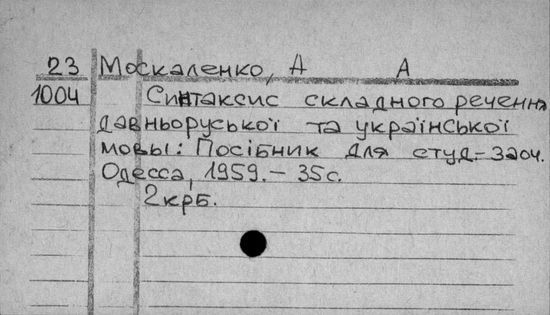 23 Москаленко, А А
1004 Синтаксис складного реченн
давньоруської та української
мовы: Посібник для студ.-заоч.
Одесса, 1959.- 35с.
2крб.